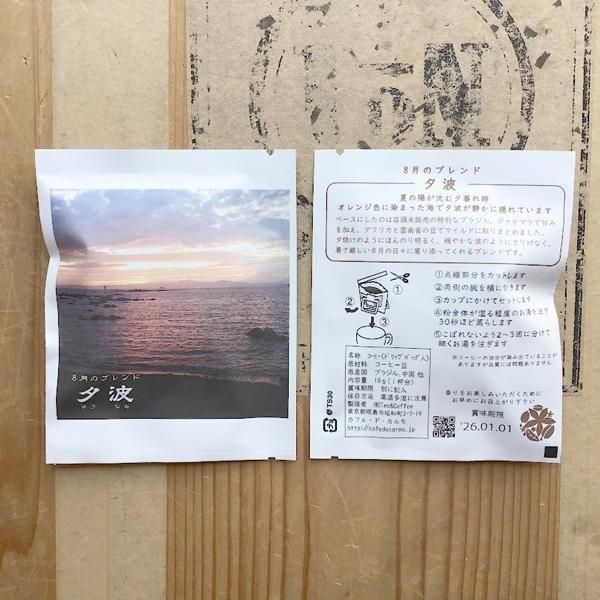 8月のブレンド
夕波
ゆう なみ
8月のブレンド
夕波
夏の陽が沈む夕暮れ時
オレンジ色に染まった海で夕波が静かに揺れています
ベースにしたのは店頭未販売の特別なブラジル。グァテマラで甘み
を加え、アフリカと雲南省の豆でマイルドに取りまとめました。
夕焼けのようにほんのり明るく、穏やかな波のようにさりげなく、
暑さ厳しい8月の日々に寄り添ってくれるブレンドです。
①点線部分をカットします
②両側の腕を横に引きます
③カップにかけてセットします
④粉全体が湿る程度のお湯を注ぎ
30秒ほど蒸らします
⑤こぼれないよう2~3回に分けて
細くお湯を注ぎます
①
②
③
※コーヒーの油分が染み出ていることが
ありますが品質には問題ありません
名称 コーヒー(ドリップバッグ入)
原材料 コーヒー豆
原産国 ブラジル,中国 他
内容量 10g(1杯分)
賞味期限 別に記入
保存方法 高温多湿に注意
製造者 ㈲Tea&Coffee
東京都昭島市昭和町2-7-19
カフェ・ド・カルモ
http://cafeducarmo.com/
@TS30
香りをお楽しみいただくために
お早めにお召し上がり下さい
賞味期限
'26.01.01